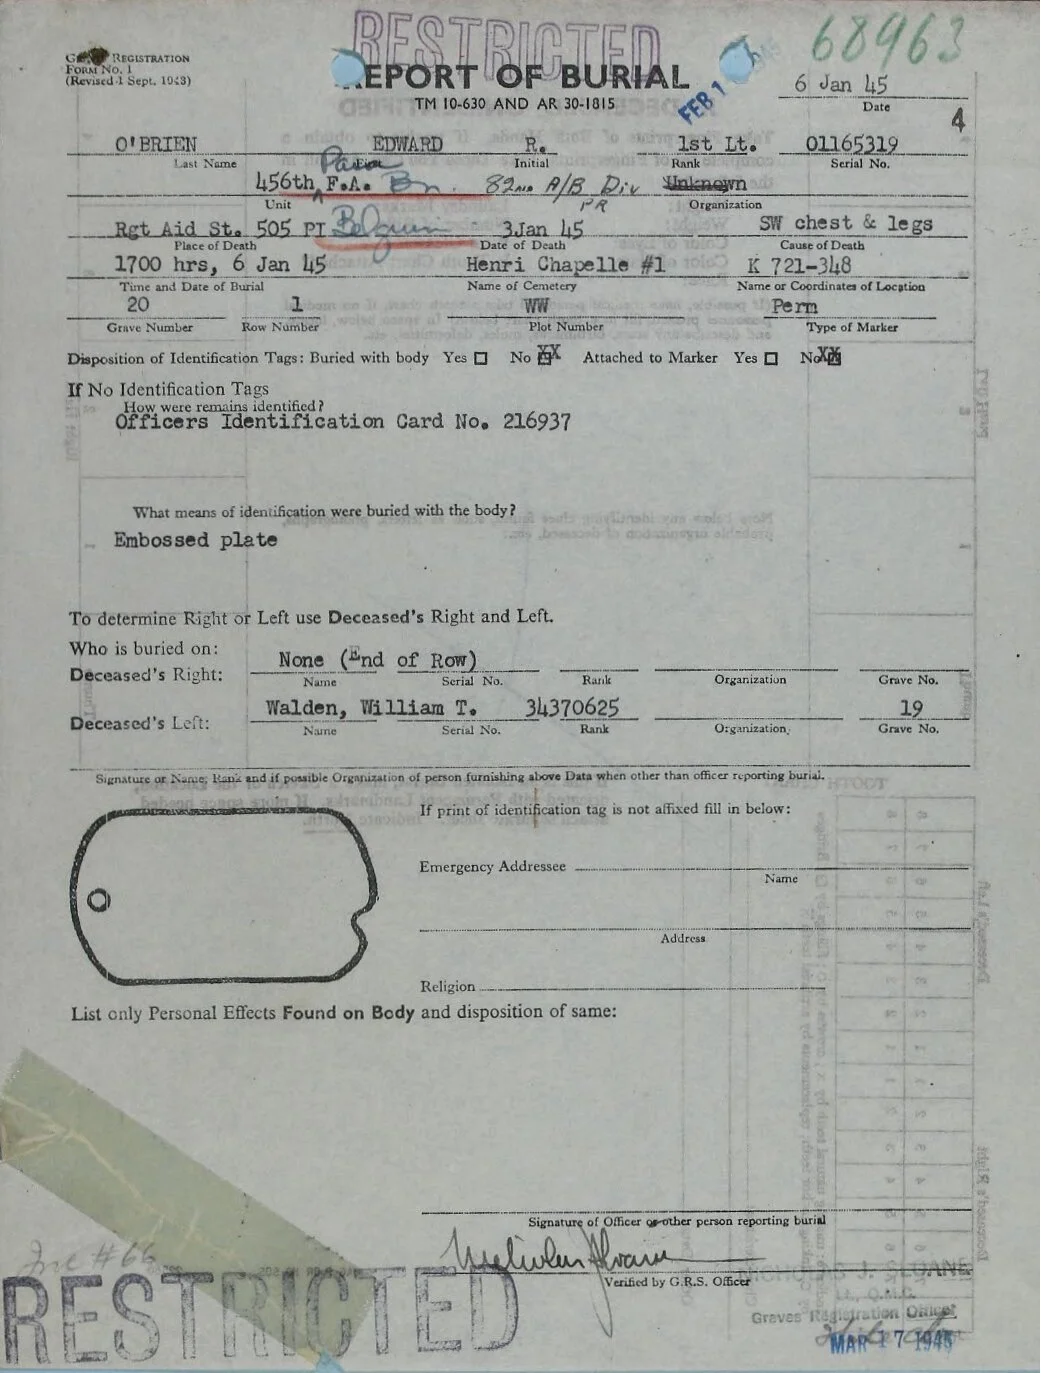 RESTRICTED
68963
REGISTRATION
FORM NO. 1
(Revised 1 Sept. 1943)
REPORT OF BURIAL
TM 10-630 AND AR 30-1815
FEB 1
6 Jan 45
Date
4
O'BRIEN EDWARD R. 1st Lt. 01165319
Last Name Initial Rank Serial No.
456th F.A. Bn. 82nd A/B Div Unknown
Unit Organization
Rgt Aid St. 505 PI Belgium 3Jan 45 SW chest & legs
Place of Death Date of Death Cause of Death
1700 hrs, 6 Jan 45 Henri Chapelle #1 K 721-348
Time and Date of Burial Name of Cemetery Name or Coordinates of Location
20 1 WW Perm
Grave Number Row Number Plot Number Type of Marker
Disposition of Identification Tags: Buried with body Yes ☐ No XX Attached to Marker Yes ☐ No XX
If No Identification Tags
How were remains identified?
Officers Identification Card No. 216937
What means of identification were buried with the body?
Embossed plate
To determine Right or Left use Deceased's Right and Left.
Who is buried on:
Deceased's Right: None (End of Row)
Name Serial No. Rank Organization Grave No.
Deceased's Left: Walden, William T. 34370625 19
Name Serial No. Rank Organization Grave No.
Signature or Name, Rank and if possible Organization of person furnishing above Data when other than officer reporting burial.
If print of identification tag is not affixed fill in below:
Emergency Addressee
Name
Address
Religion
List only Personal Effects Found on Body and disposition of same:
Signature of Officer or other person reporting burial
Verified by G.R.S. Officer
NICHOLAS J. SLOANE
Graves Registration Officer
MAR 17 1945
RESTRICTED